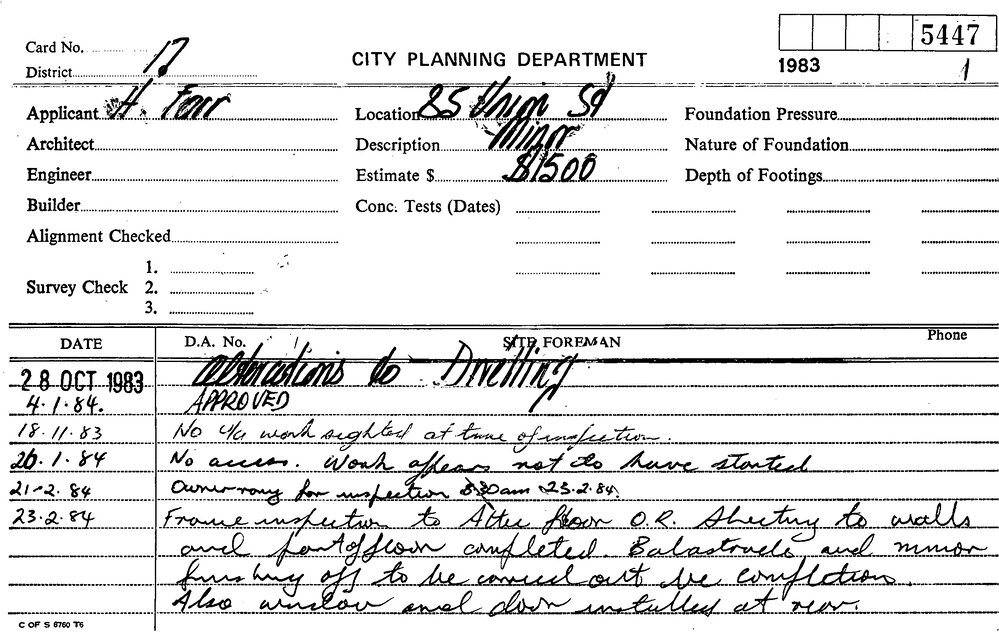 5447
Card No. 17
CITY PLANNING DEPARTMENT
1983 1
District
Applicant H. Farr Location 85 Union St Foundation Pressure
Architect Description Minor Nature of Foundation
Engineer Estimate $ $1500 Depth of Footings
Builder Conc. Tests (Dates)
Alignment Checked
1.
Survey Check 2.
3.
DATE D.A. No. SITE FOREMAN Phone
28 OCT 1983 Alterations to Dwelling
4.1.84. APPROVED
18.11.83 No u/a work sighted at time of inspection.
20.1.84 No access. Work appears not to have started
21-2.84 Owner rang for inspection 8.30am 23.2.84.
23.2.84 Frame inspection to Attic floor O.K. Sheeting to walls
and part of floor completed. Balastrade and minor
finishing off to be carried out be completion.
Also window and door installed at rear.
C OF S 8760 T6